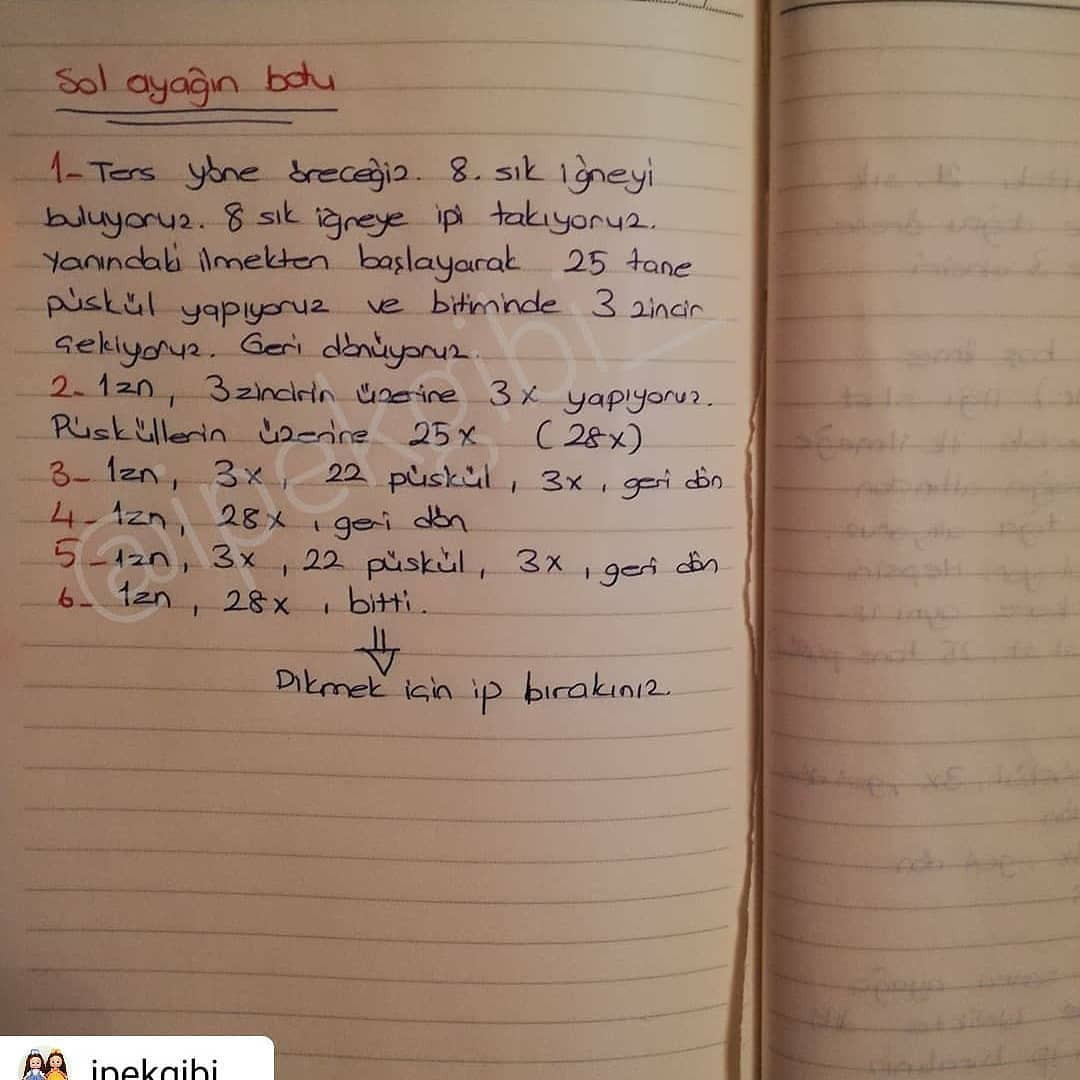 Sol ayağın botu
1- Ters yöne öreceğiz. 8. sık iğneyi
buluyoruz. 8 sık iğneye ipi takıyoruz.
Yanındaki ilmekten başlayarak 25 tane
püskül yapıyoruz ve bitiminde 3 zincir
çekiyoruz. Geri dönüyoruz.
2- 1zn, 3 zincirin üzerine 3x yapıyoruz.
Püsküllerin üzerine 25x (28x)
3- 1zn, 3x, 22 püskül, 3x, geri dön
4- 1zn, 28x, geri dön
5- 1zn, 3x, 22 püskül, 3x, geri dön
6- 1zn, 28x, bitti.
Dikmek için ip bırakınız.
@ipekgibi_
ipekgibi_